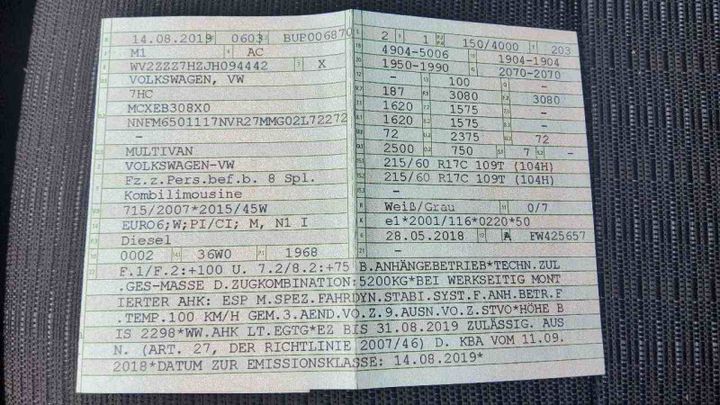 14.08.2019 0603 BUP006870
M1 AC
WV2ZZZ7HZJH094442 X
VOLKSWAGEN, VW
7HC
MCXEB308X0
NNFM6501117NVR27MMG02L72272
-
MULTIVAN
VOLKSWAGEN-VW
Fz.z.Pers.bef.b. 8 Spl.
Kombilimousine
715/2007*2015/45W
EURO6;W;PI/CI; M, N1 I
Diesel
0002 36W0 1968
2 1 150/4000 203
4904-5006 1904-1904
1950-1990 2070-2070
- 100 -
187 3080 3080
1620 1575 -
1620 1575 -
72 2375 72
2500 750 7 -
215/60 R17C 109T (104H)
215/60 R17C 109T (104H)
-
Weiß/Grau 0/7
e1*2001/116*0220*50
28.05.2018 A FW425657
-
F.1/F.2:+100 U. 7.2/8.2:+75 B.ANHÄNGEBETRIEB*TECHN.ZUL
.GES-MASSE D.ZUGKOMBINATION:5200KG*BEI WERKSEITIG MONT
IERTER AHK: ESP M.SPEZ.FAHRDYN.STABI.SYST.F.ANH.BETR.F
.TEMP.100 KM/H GEM.3.AEND.VO.Z.9.AUSN.VO.Z.STVO*HÖHE B
IS 2298*WW.AHK LT.EGTG*EZ BIS 31.08.2019 ZULÄSSIG. AUS
N. (ART. 27, DER RICHTLINIE 2007/46) D. KBA VOM 11.09.
2018*DATUM ZUR EMISSIONSKLASSE: 14.08.2019*